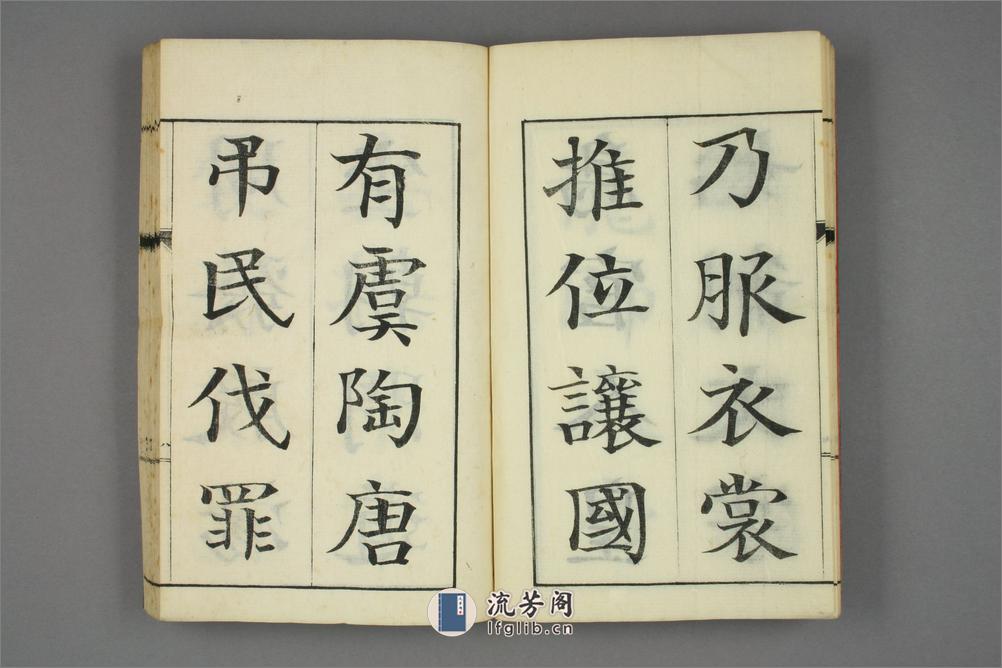 乃服衣裳
推位讓國
有虞陶唐
弔民伐罪
流芳阁
lfglib.cn